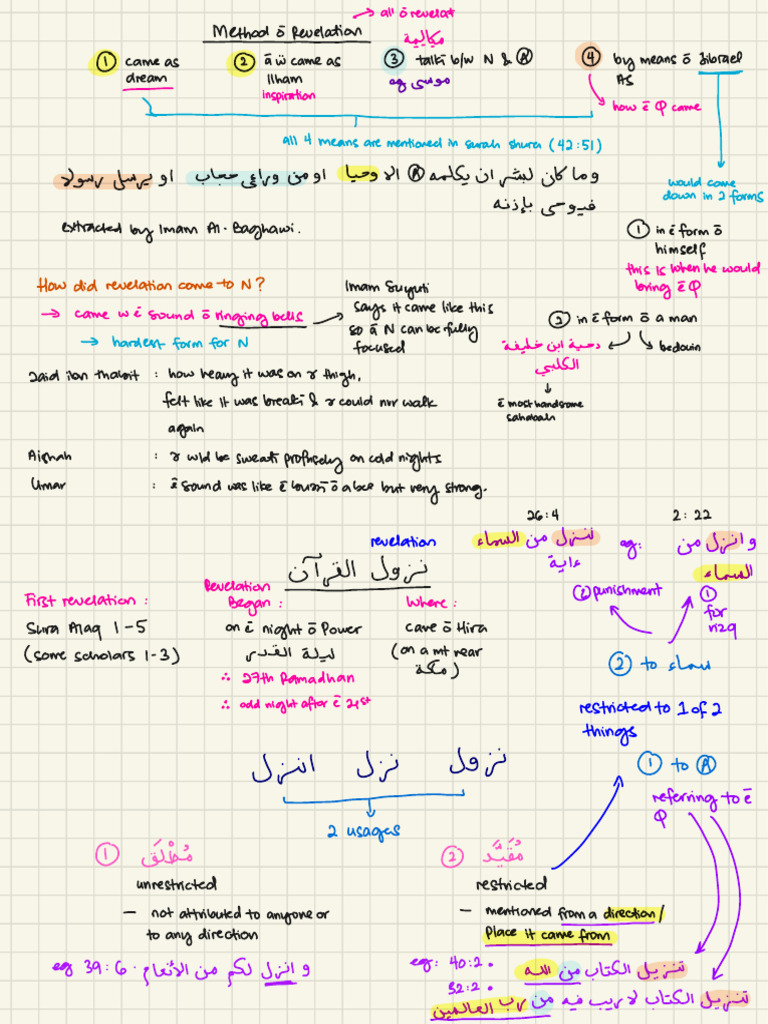 Method ō Revelation
→ all ō revelat
مكالمية
① came as dream
② ā ẅ came as Ilham
inspiration
③ talkī b/w N & Ⓐ
eg موسى
④ by means ō Jibrael AS
how ē Q came
all 4 means are mentioned in surah shura (42:51)
وما كان لبشر ان يكلمه Ⓐ الا وحيا او من وراءى حجاب او يرسل رسولا
فيوحى بإذنه
extracted by Imam Al-Baghawi.
would come
down in 2 forms
① in ē form ō
himself
this is when he would
bring ē Q
② in ē form ō a man
دحية ابن خليفة
الكلبي
bedouin
ē most handsome
sahabah
How did revelation come to N?
→ came w ē sound ō ringing bells
→ hardest form for N
Imam Suyuti
says it came like this
so ā N can be fully
focused
Zaid ibn thabit : how heavy it was on r thigh,
felt like it was breakī & r could nor walk
again
Aishah : r wld be sweatī profusely on cold nights
Umar : ē sound was like ē buzzī ō a bee but very strong.
revelation
نزول القرآن
First revelation :
Sura Alaq 1-5
(some scholars 1-3)
Revelation
Began :
on ē night ō Power
ليلة القدر
∴ 27th Ramadhan
∴ odd night after ē 21st
Where :
cave ō Hira
(on a mt near
مكة)
26:4
ننزل من السماء
ءاية
eg:
2:22
وانزل من
السماء
② punishment
① for
rizq
② to سماء
restricted to 1 of 2
things
① to Ⓐ
referring to ē
Q
نزول نزل انزل
2 usages
① مُطْلَق
unrestricted
— not attributed to anyone or
to any direction
eg 39:6 · وانزل لكم من الأنعام
② مُقَيَّد
restricted
— mentioned from a direction/
Place it came from
eg: 40:2 • تنزيل الكتاب من الله
32:2 • تنزيل الكتاب لا ريب فيه من رب العالمين